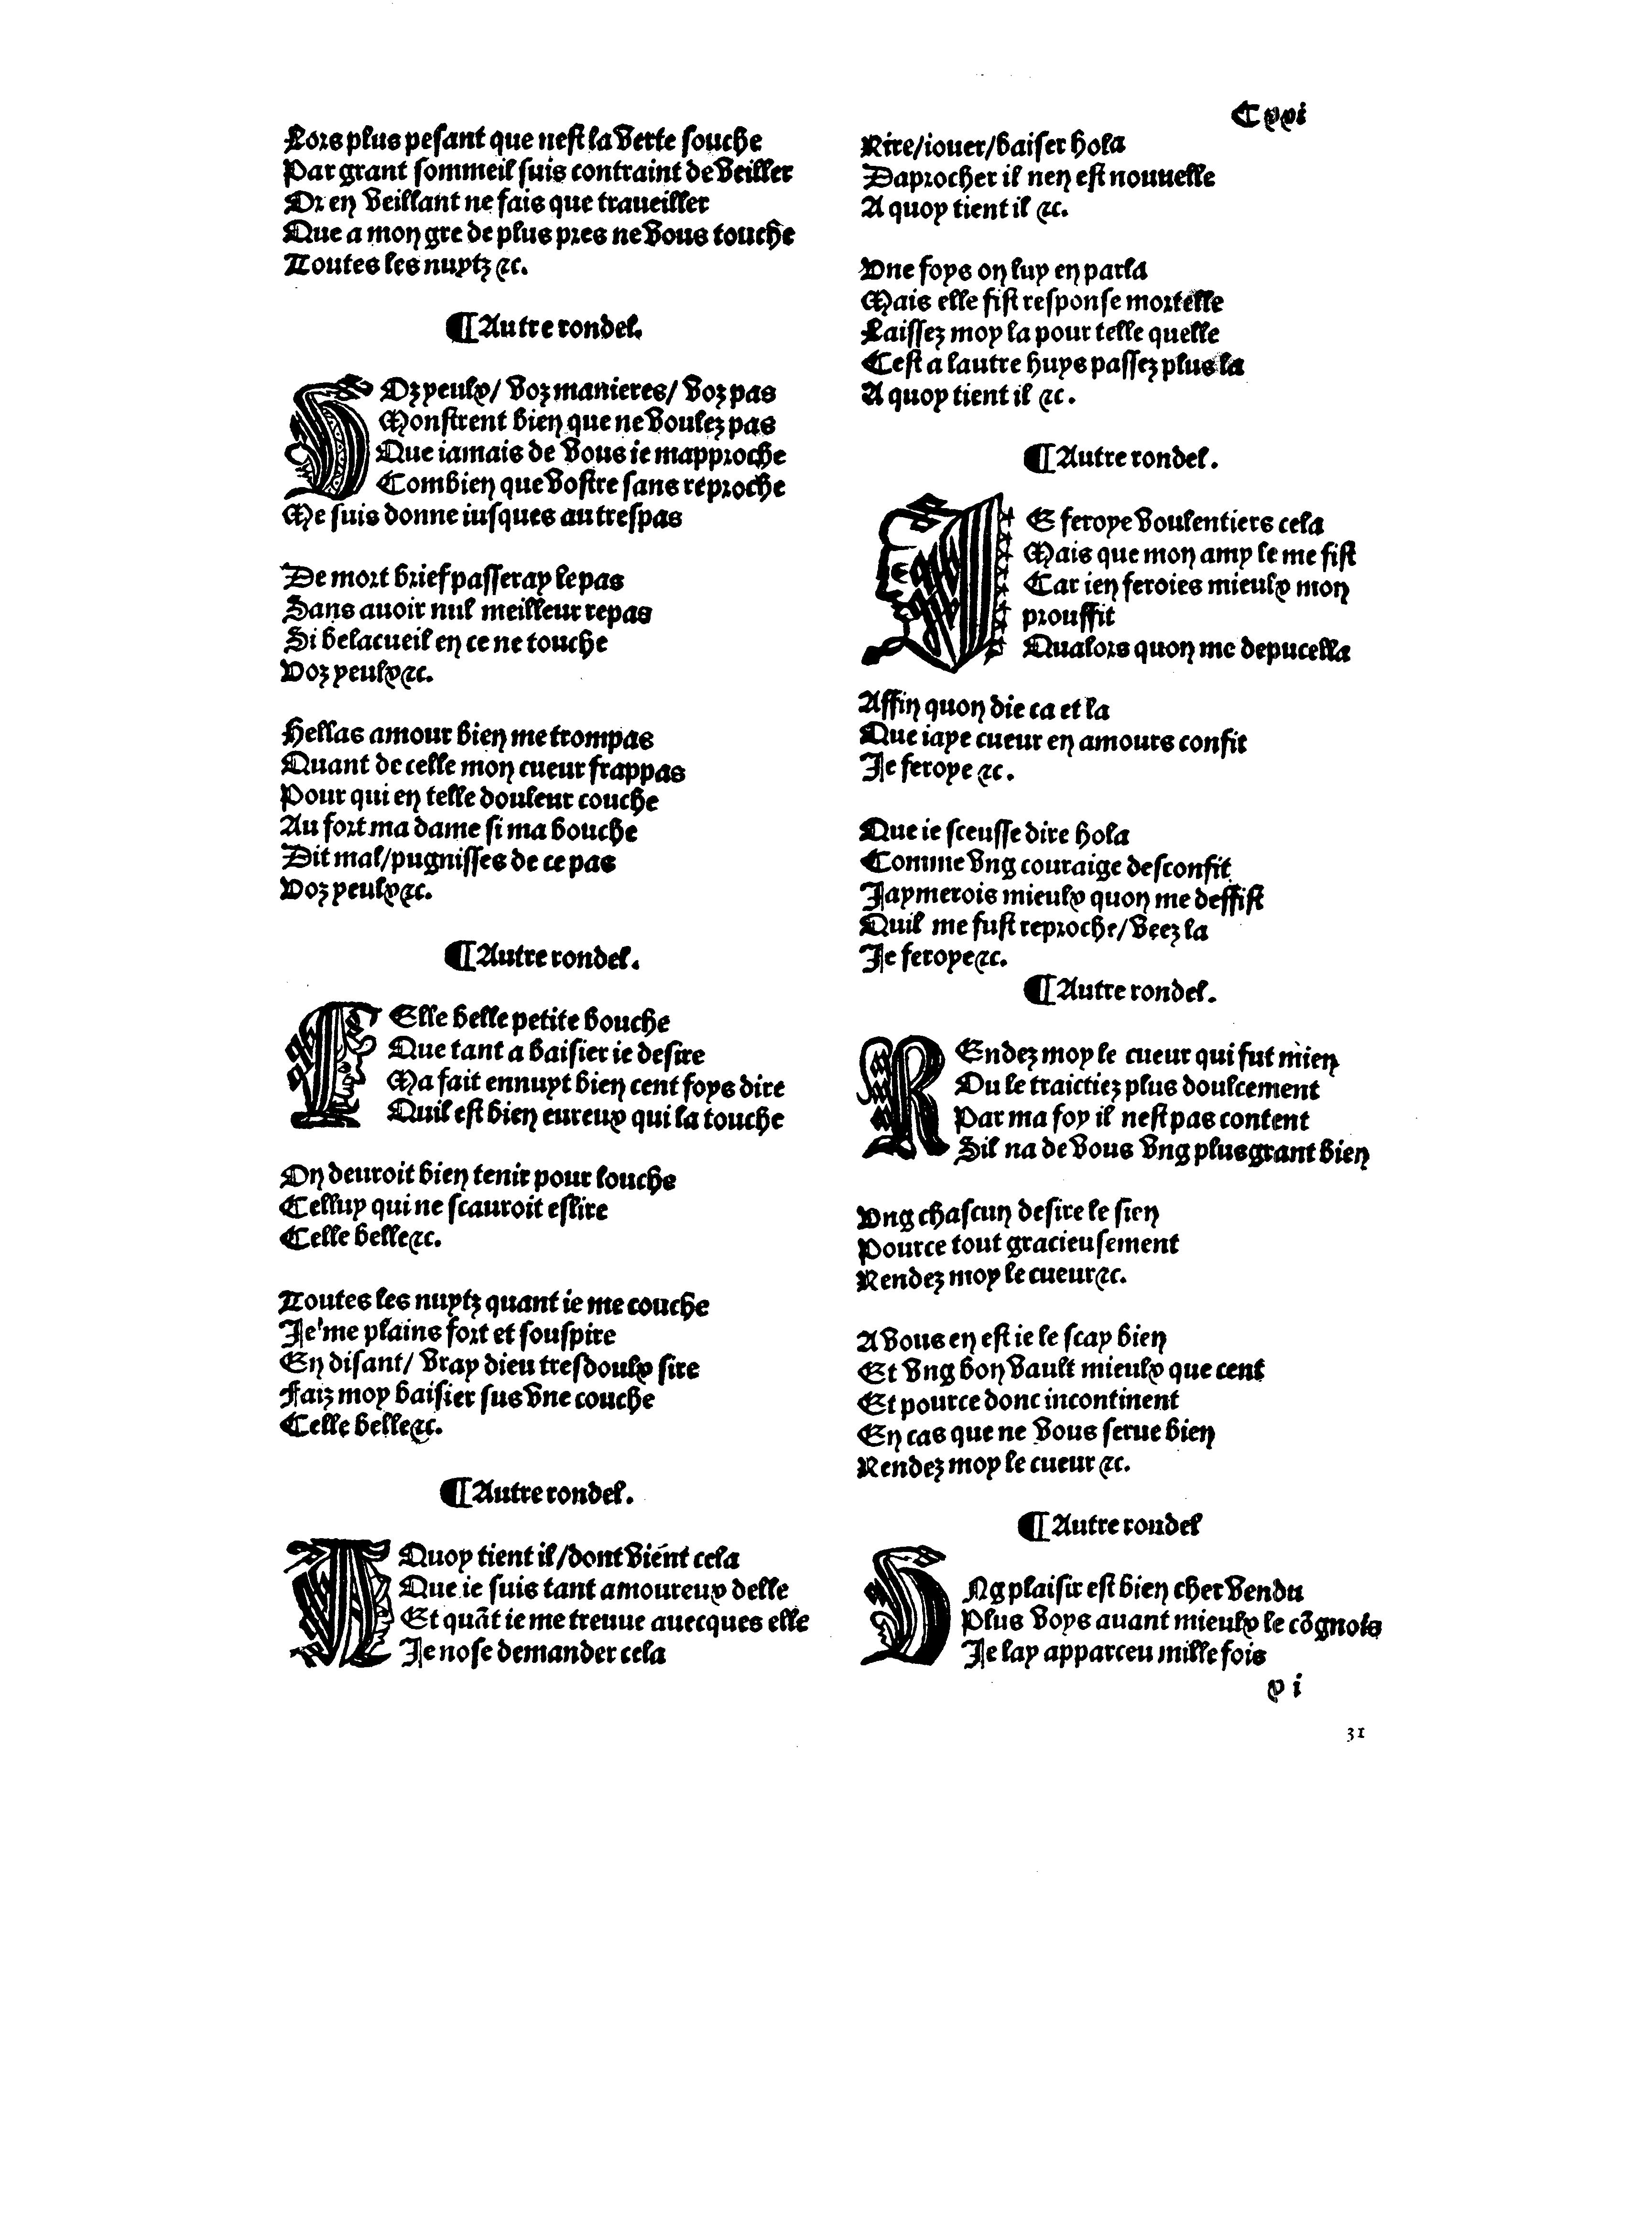 Lors plus pesant que nest la verte souche
Par grant sommeil suis contraint de veiller
Or en veillant ne fais que traueiller
Que a mon gre de plus pres ne vous touche
Toutes les nuytz &c.
¶ Autre rondel.
VOz yeulx/ voz manieres/ voz pas
Monstrent bien que ne voulez pas
Que iamais de vous ie mapproche
Combien que vostre sans reproche
Me suis donne iusques au trespas
De mort brief passeray le pas
Sans auoir nul meilleur repas
Si belacueil en ce ne touche
Voz yeulx &c.
Hellas amour bien me trompas
Quant de celle mon cueur frappas
Pour qui en telle douleur couche
Au fort ma dame si ma bouche
Dit mal/pugnisses de ce pas
Voz yeulx &c.
¶ Autre rondel.
CElle belle petite bouche
Que tant a baisier ie desire
Ma fait ennuyt bien cent foys dire
Quil est bien eureux qui la touche
On deuroit bien tenir pour louche
Celluy qui ne scauroit eslire
Celle belle &c.
Toutes les nuytz quant ie me couche
Je me plains fort et souspire
En disant/ vray dieu tresdoulx sire
Faiz moy baisier sus vne couche
Celle belle &c.
¶ Autre rondel.
A Quoy tient il/dont vient cela
Que ie suis tant amoureux delle
Et quãt ie me treuue auecques elle
Je nose demander cela
C xxi
Rire/iouer/baiser hola
Daprocher il nen est nouuelle
A quoy tient il &c.
Vne foys on luy en parla
Mais elle fist response mortelle
Laissez moy la pour telle quelle
Cest a lautre huys passez plus la
A quoy tient il &c.
¶ Autre rondel.
JE feroye voulentiers cela
Mais que mon amy le me fist
Car ien feroies mieulx mon
prouffit
Qualors quon me depucella
Affin quon die ca et la
Que iaye cueur en amours confit
Je feroye &c.
Que ie sceusse dire hola
Comme vng couraige desconfit
Jaymerois mieulx quon me deffist
Quil me fust reproche/veez la
Je feroye &c.
¶ Autre rondel.
REndez moy le cueur qui fut mien
Ou le traictiez plus doulcement
Par ma foy il nest pas content
Sil na de vous vng plus grant bien
Vng chascun desire le sien
Pource tout gracieusement
Rendez moy le cueur &c.
A vous en est ie le scay bien
Et vng bon vault mieulx que cent
Et pource donc incontinent
En cas que ne vous serue bien
Rendez moy le cueur &c.
¶ Autre rondel
VNg plaisir est bien cher vendu
Plus voys auant mieulx le cõgnois
Je lay apparceu mille fois
x i
31